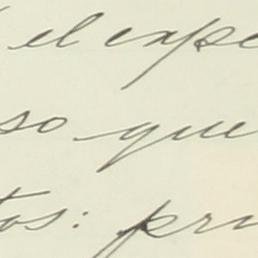 el expe
so que
tos: pru